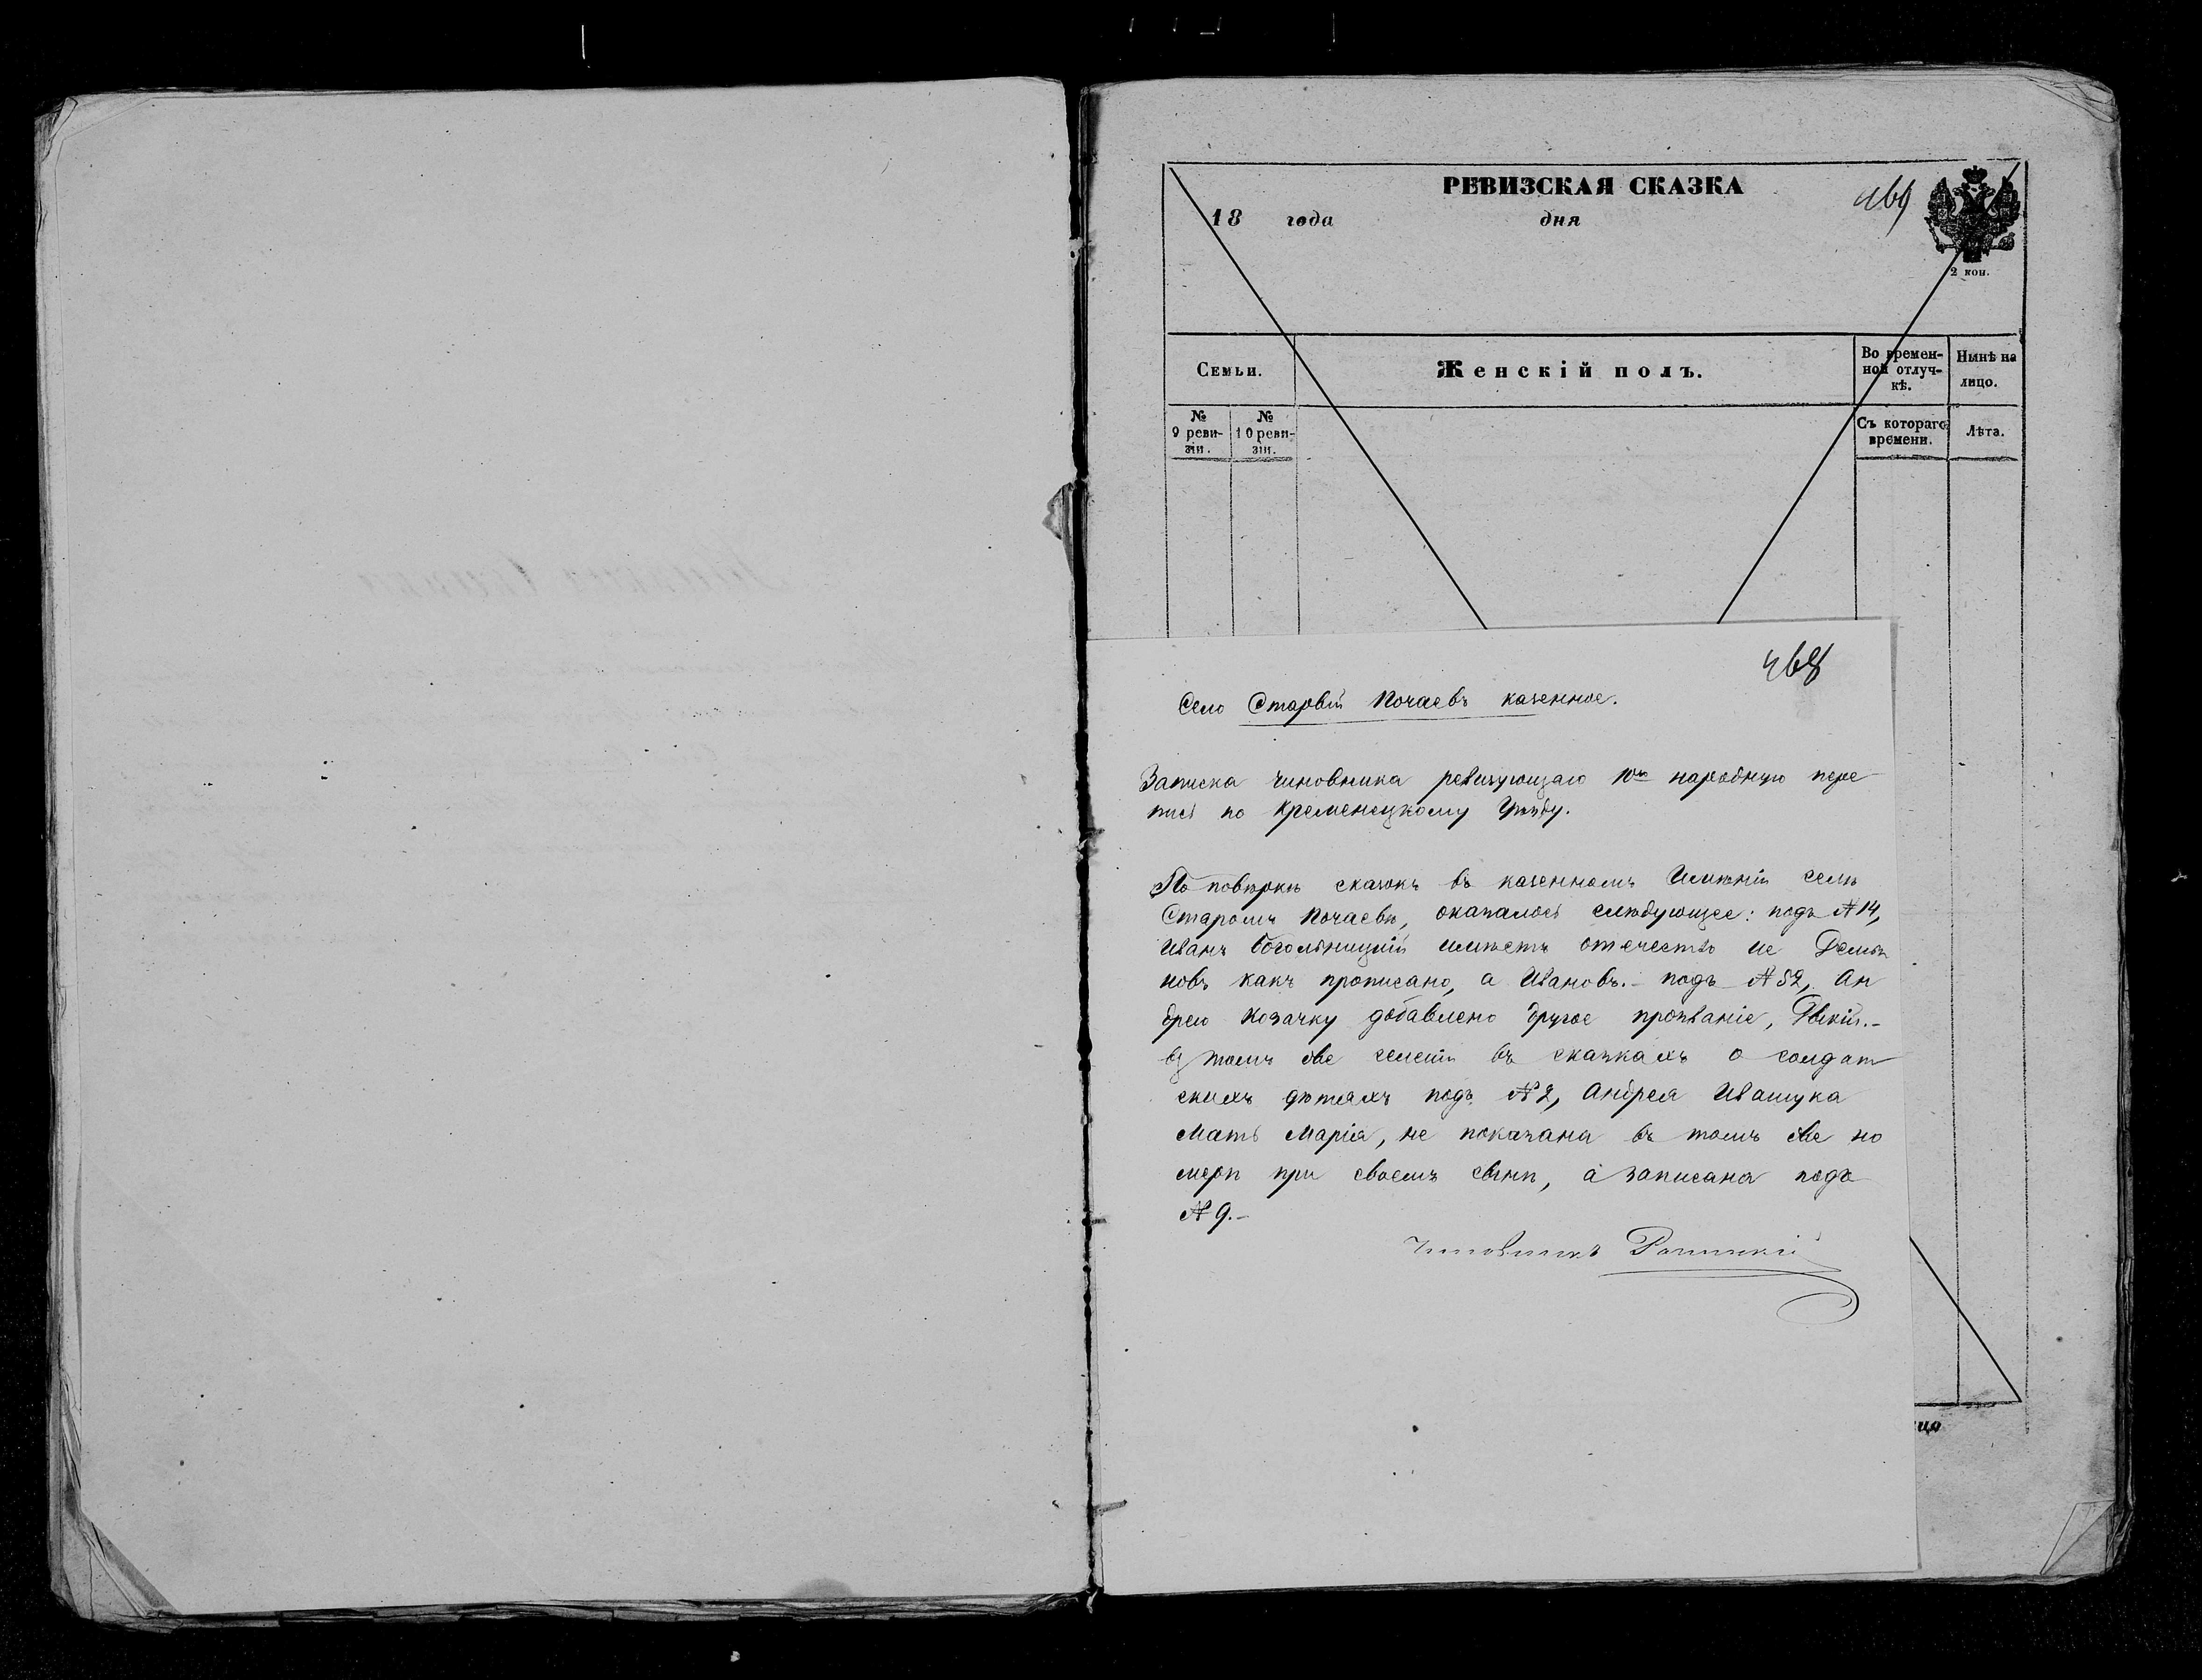 РЕВИЗСКАЯ СКАЗКА
469
18 года дня
2 коп.
Семьи.
Женскій полъ.
Во времен-
ной отлуч-
кѣ.
Нынѣ на
лицо.
№
9 реви-
зіи.
№
10 реви-
зіи.
Съ котораго
времени.
Лѣта.
468
Село Старый Почаевъ казенное.
Записка чиновника ревизующаго 10ю народную пере-
пись по Кременецкому Уѣзду.
По повѣркѣ сказокъ въ казенномъ Имѣніи селѣ
Старомъ Почаевѣ, оказалось слѣдующее: подъ №14,
Иванъ имѣетъ отечество не Демья
новъ какъ прописано, а Ивановъ.- подъ №52, Ан
дрею Козачку добавлено другое прозваніе,
въ томъ же селеніи въ сказкахъ о солдат
скихъ дѣтяхъ подъ №2, Андрея Иващука
Мать Марія, не показана въ томъ же но
мерѣ при своемъ сынѣ, а записана подъ
№9.-
Чиновникъ
цо